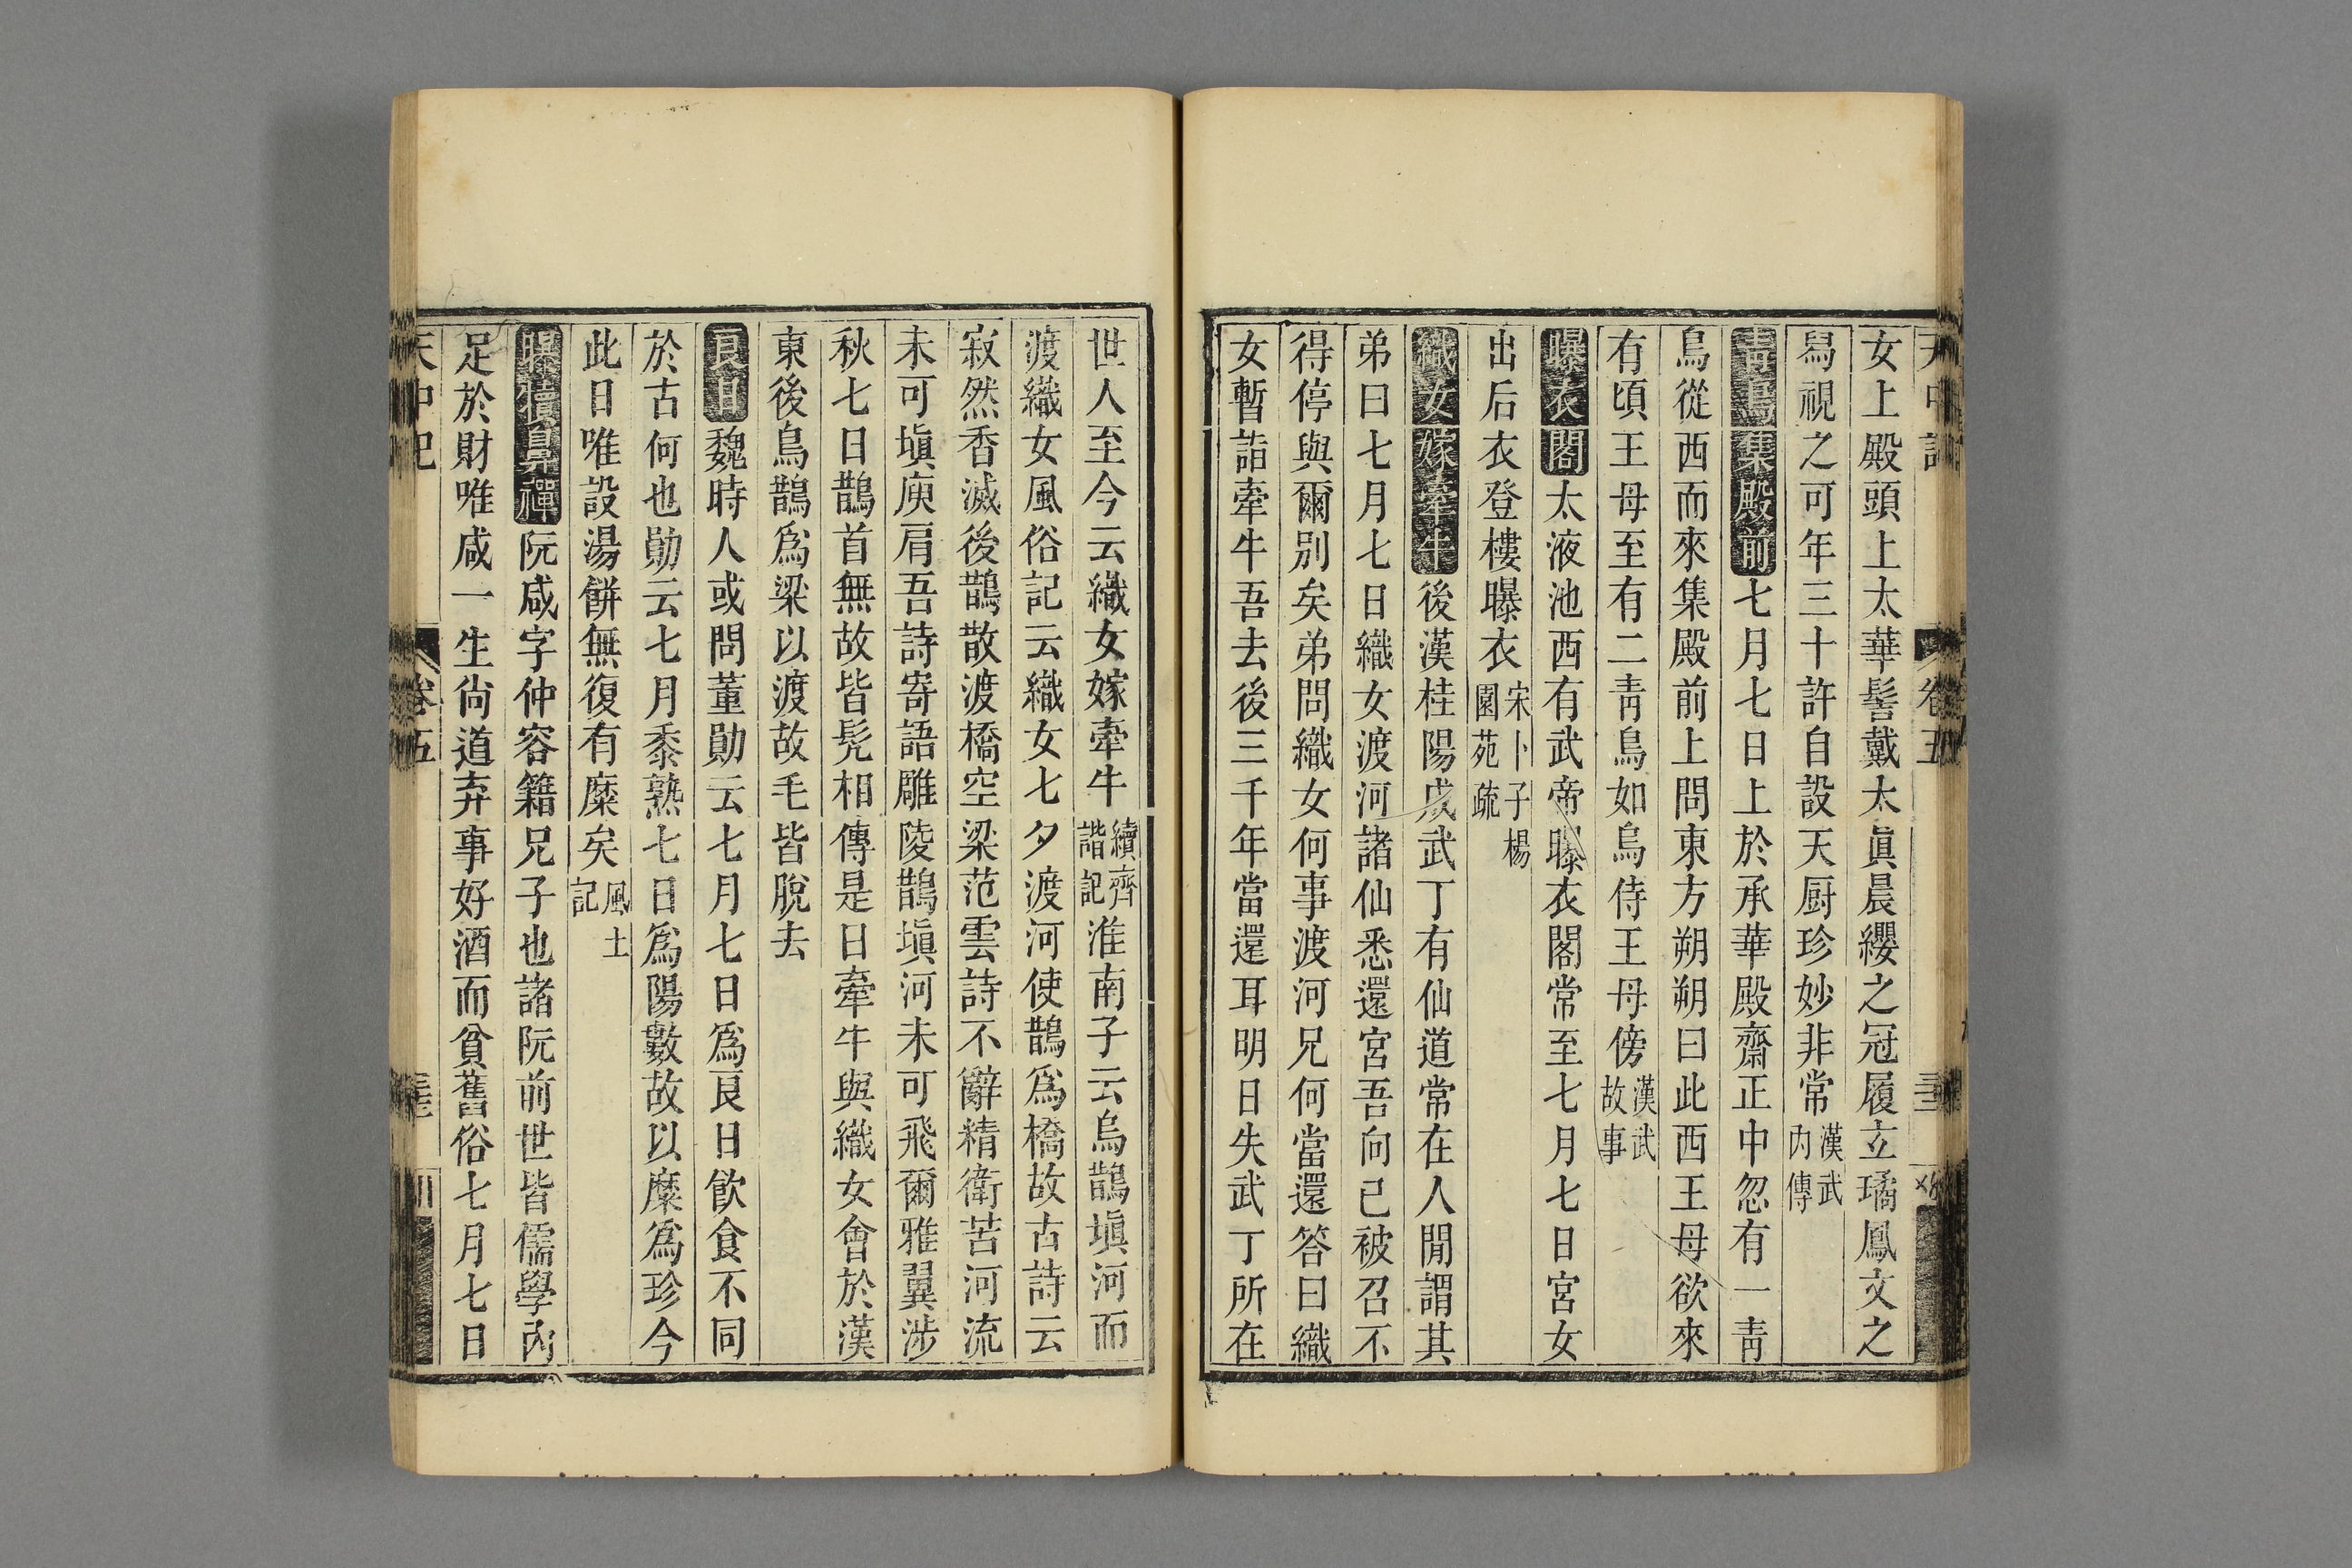 女上殿頭上太華髻戴太眞晨纓之冠履立璚鳳文之
舄視之可年三十許自設天厨珍妙非常漢武內傳
青鳥集殿前七月七日上於承華殿齋正中忽有一青
鳥從西而來集殿前上問東方朔朔曰此西王母欲來
有頃王母至有二青鳥如烏侍王母傍漢武故事
曝衣閣太液池西有武帝曝衣閣常至七月七日宮女
出后衣登樓曝衣宋卜子楊園苑疏
織女嫁牽牛後漢桂陽成武丁有仙道常在人閒謂其
弟曰七月七日織女渡河諸仙悉還宮吾向已被召不
得停與爾別矣弟問織女何事渡河兄何當還答曰織
女暫詣牽牛吾去後三千年當還耳明日失武丁所在
世人至今云織女嫁牽牛續齊諧記淮南子云烏鵲塡河而
渡織女風俗記云織女七夕渡河使鵲爲橋故古詩云
寂然香滅後鵲散渡橋空梁范雲詩不辭精衛苦河流
未可塡庾肩吾詩寄語雕陵鵲塡河未可飛爾雅翼涉
秋七日鵲首無故皆髡相傳是日牽牛與織女會於漢
東後烏鵲爲梁以渡故毛皆脫去
良日魏時人或問董勛云七月七日爲良日飮食不同
於古何也勛云七月黍熟七日爲陽數故以糜爲珍今
此日唯設湯餠無復有糜矣風土記
曝犢鼻褌阮咸字仲容籍兄子也諸阮前世皆儒學內
足於財唯咸一生尙道弃事好酒而貧舊俗七月七日
天中記
卷五